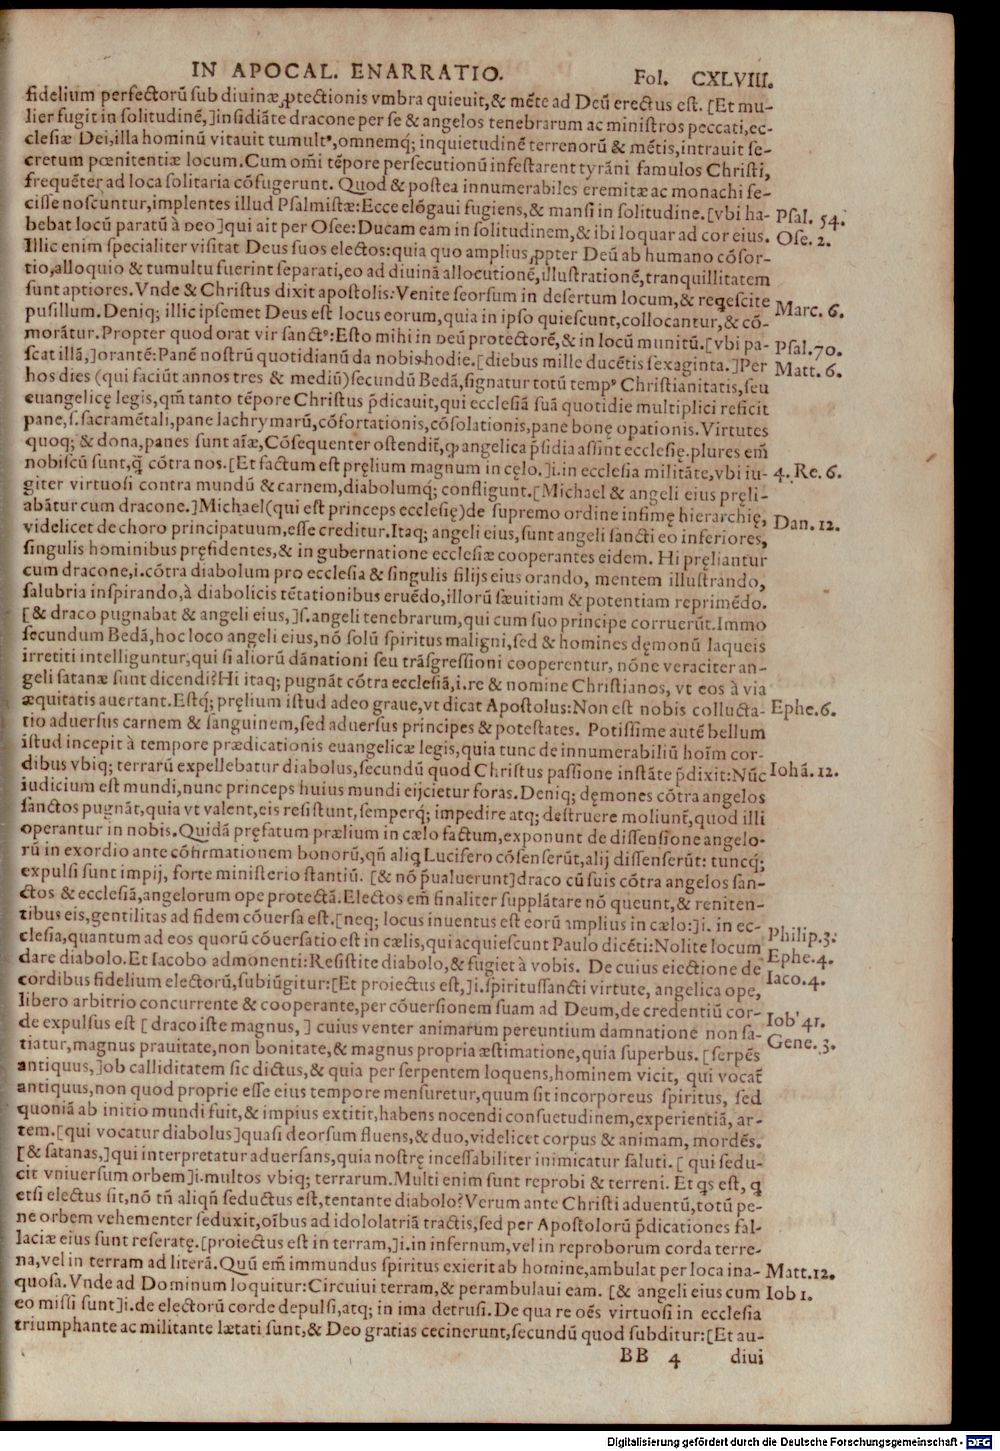 IN APOCAL. ENARRATIO. Fol. CXLVIII.
fidelium perfectorū sub diuinæ ꝓtectionis vmbra quieuit, & mēte ad Deū erectus est. [Et mu-
lier fugit in solitudinē,] insidiāte dracone per se & angelos tenebrarum ac ministros peccati, ec-
clesiæ Dei, illa hominū vitauit tumultꝰ, omnemq; inquietudinē terrenorū & mētis, intrauit se-
cretum pœnitentiæ locum. Cum om̄i tēpore persecutionū infestarent tyrāni famulos Christi,
frequēter ad loca solitaria cōfugerunt. Quod & postea innumerabiles eremitæ ac monachi fe-
cisse noscuntur, implentes illud Psalmistæ: Ecce elōgaui fugiens, & mansi in solitudine. [vbi ha- Psal. 54.
bebat locū paratū à Deo] qui ait per Osee: Ducam eam in solitudinem, & ibi loquar ad cor eius. Ose. 2.
Illic enim specialiter visitat Deus suos electos: quia quo amplius ꝓpter Deū ab humano cōsor-
tio, alloquio & tumultu fuerint separati, eo ad diuinā allocutionē, illustrationē, tranquillitatem
sunt aptiores. Vnde & Christus dixit apostolis: Venite seorsum in desertum locum, & reqescite Marc. 6.
pusillum. Deniq; illic ipsemet Deus est locus eorum, quia in ipso quiescunt, collocantur, & cō-
morātur. Propter quod orat vir sanctꝰ: Esto mihi in Deū protectorē, & in locū munitū. [vbi pa- Psal. 70.
scat illā,] orantē: Panē nostrū quotidianū da nobis hodie. [diebus mille ducētis sexaginta.] Per Matt. 6.
hos dies (qui faciūt annos tres & mediū) secundū Bedā, signatur totū tempꝰ Christianitatis, seu
euangelicę legis, qm̄ tanto tēpore Christus p̄dicauit, qui ecclesiā suā quotidie multiplici reficit
pane, s. sacramētali, pane lachrymarū, cōfortationis, cōsolationis, pane bonę opationis. Virtutes
quoq; & dona, panes sunt aīæ, Cōsequenter ostendit̄, ꝙ angelica p̄sidia assint ecclesię. plures em̄
nobiscū sunt, q̄ cōtra nos. [Et factum est pręlium magnum in cęlo.] i. in ecclesia militāte, vbi iu- 4. Re. 6.
giter virtuosi contra mundū & carnem, diabolumq; confligunt. [Michael & angeli eius pręli-
abātur cum dracone.] Michael (qui est princeps ecclesię) de supremo ordine infimę hierarchię, Dan. 12.
videlicet de choro principatuum, esse creditur. Itaq; angeli eius, sunt angeli sancti eo inferiores,
singulis hominibus pręsidentes, & in gubernatione ecclesiæ cooperantes eidem. Hi pręliantur
cum dracone, i. cōtra diabolum pro ecclesia & singulis filijs eius orando, mentem illustrando,
salubria inspirando, à diabolicis tētationibus eruēdo, illorū sæuitiam & potentiam reprimēdo.
[& draco pugnabat & angeli eius,] s. angeli tenebrarum, qui cum suo principe corruerūt. Immo
secundum Bedā, hoc loco angeli eius, nō solū spiritus maligni, sed & homines dęmonū laqueis
irretiti intelliguntur, qui si aliorū dānationi seu trāsgressioni cooperentur, nōne veraciter an-
geli satanæ sunt dicendi? Hi itaq; pugnāt cōtra ecclesiā, i. re & nomine Christianos, vt eos à via
æquitatis auertant. Estq; pręlium istud adeo graue, vt dicat Apostolus: Non est nobis collucta- Ephe. 6.
tio aduersus carnem & sanguinem, sed aduersus principes & potestates. Potissime autē bellum
istud incepit à tempore prædicationis euangelicæ legis, quia tunc de innumerabiliū hoīm cor-
dibus vbiq; terrarū expellebatur diabolus, secundū quod Christus passione instāte p̄dixit: Nūc Iohā. 12.
iudicium est mundi, nunc princeps huius mundi eijcietur foras. Deniq; dęmones cōtra angelos
sanctos pugnāt, quia vt valent, eis resistunt, semperq; impedire atq; destruere moliunt̄, quod illi
operantur in nobis. Quidā pręfatum prælium in cælo factum, exponunt de dissensione angelo-
rū in exordio ante cōfirmationem bonorū, qn̄ aliq Lucifero cōsenserūt, alij dissenserūt: tuncq;
expulsi sunt impij, forte ministerio stantiū. [& nō p̄ualuerunt] draco cū suis cōtra angelos san-
ctos & ecclesiā, angelorum ope protectā. Electos em̄ finaliter supplātare nō queunt, & reniten-
tibus eis, gentilitas ad fidem cōuersa est. [neq; locus inuentus est eorū amplius in cælo:] i. in ec-
clesia, quantum ad eos quorū cōuersatio est in cælis, qui acquiescunt Paulo dicēti: Nolite locum Philip. 3.
dare diabolo. Et Iacobo admonenti: Resistite diabolo, & fugiet à vobis. De cuius eiectione de Ephe. 4.
cordibus fidelium electorū, subiūgitur: [Et proiectus est,] i. spiritussancti virtute, angelica ope, Iaco. 4.
libero arbitrio concurrente & cooperante, per cōuersionem suam ad Deum, de credentiū cor-
de expulsus est [draco iste magnus,] cuius venter animarum pereuntium damnatione non sa- Iob 41.
tiatur, magnus prauitate, non bonitate, & magnus propria æstimatione, quia superbus. [serpēs Gene. 3.
antiquus,] ob calliditatem sic dictus, & quia per serpentem loquens, hominem vicit, qui vocat̄
antiquus, non quod proprie esse eius tempore mensuretur, quum sit incorporeus spiritus, sed
quoniā ab initio mundi fuit, & impius extitit, habens nocendi consuetudinem, experientiā, ar-
tem. [qui vocatur diabolus] quasi deorsum fluens, & duo, videlicet corpus & animam, mordēs.
[& satanas,] qui interpretatur aduersans, quia nostrę incessabiliter inimicatur saluti. [qui sedu-
cit vniuersum orbem] i. multos vbiq; terrarum. Multi enim sunt reprobi & terreni. Et qs est, q
etsi electus sit, nō tn̄ aliqn̄ seductus est, tentante diabolo? Verum ante Christi aduentū, totū pe-
ne orbem vehementer seduxit, oībus ad idololatriā tractis, sed per Apostolorū p̄dicationes fal-
laciæ eius sunt reseratę. [proiectus est in terram,] i. in infernum, vel in reproborum corda terre-
na, vel in terram ad literā. Quū em̄ immundus spiritus exierit ab homine, ambulat per loca ina- Matt. 12.
quosa. Vnde ad Dominum loquitur: Circuiui terram, & perambulaui eam. [& angeli eius cum Iob 1.
eo missi sunt] i. de electorū corde depulsi, atq; in ima detrusi. De qua re oēs virtuosi in ecclesia
triumphante ac militante lætati sunt, & Deo gratias cecinerunt, secundū quod subditur: [Et au-
BB 4 diui
Digitalisierung gefördert durch die Deutsche Forschungsgemeinschaft - DFG